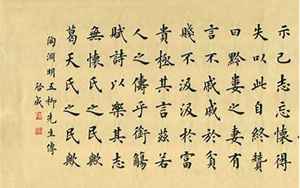 示己志忘懷得
失以此自終贊
曰黔婁之妻有
言不戚戚於貧
賤不汲汲於富
貴極其言茲若
人之儔乎銜觴
賦詩以樂其志
無懷氏之民歟
葛天氏之民歟
陶淵明五柳先生傳